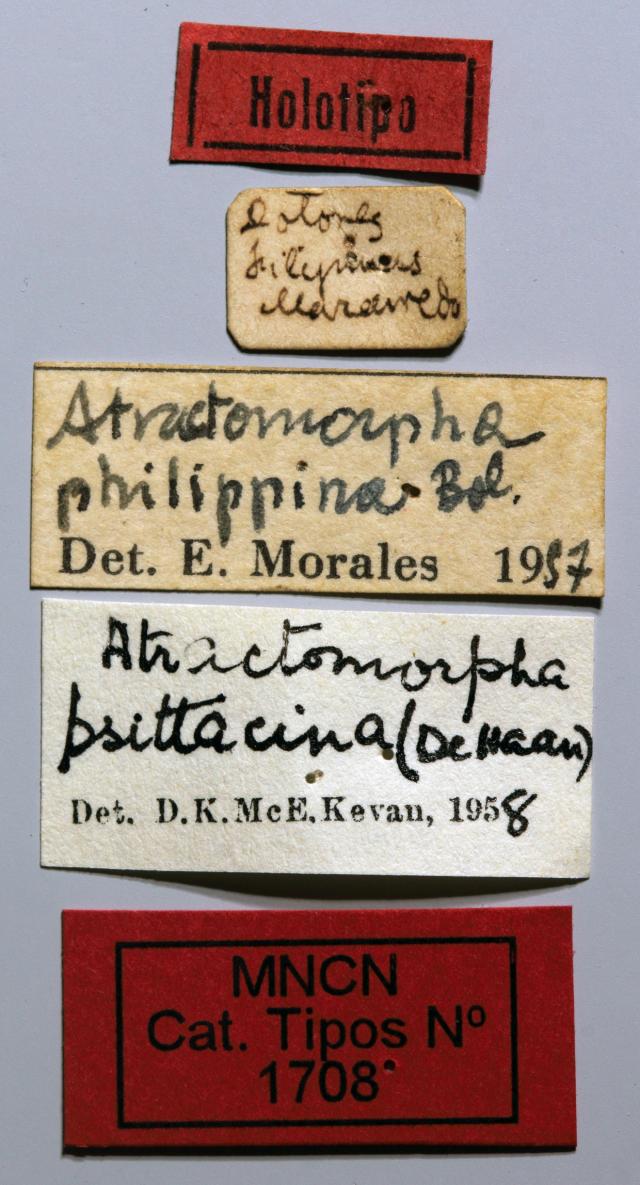 Holotipo
Filipinas
Atractomorpha
philippina Bol.
Det. E. Morales 1957
Atractomorpha
psittacina (De Haan)
Det. D.K.McE.Kevan, 1958
MNCN
Cat. Tipos Nº
1708